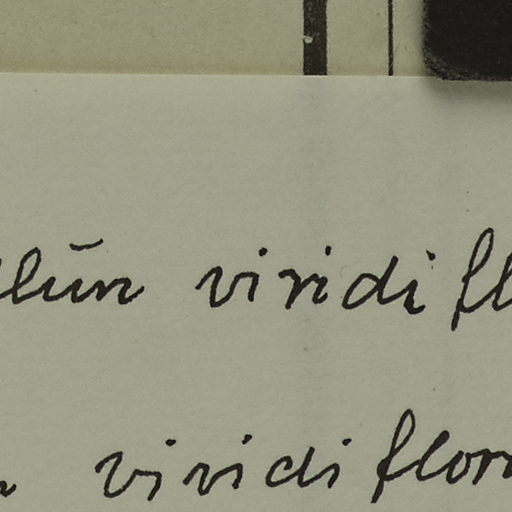 viridifl
viridiflor